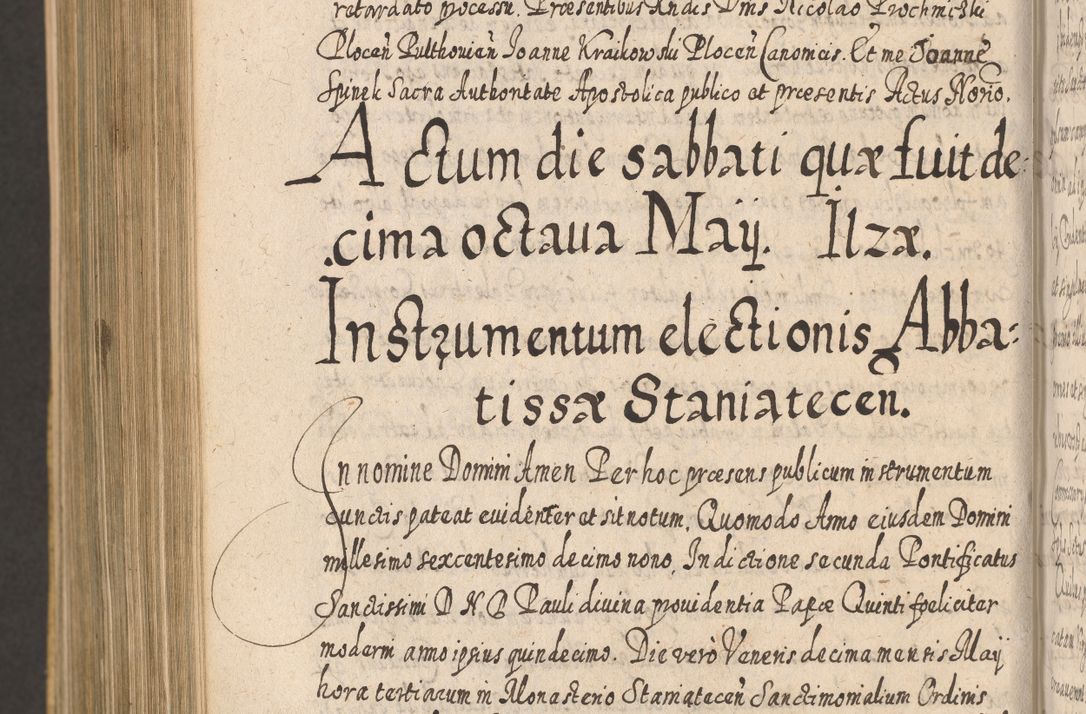 retardato processu. Præsentibus Rndis Dnis Nicolao Prochnicski
Plocen̄ Pulthovien̄ Joanne Kraikowski Plocen̄ Canonicis. Et me Joanne
Spinek Sacra Authoritate Apostolica publico et præsentis Actus Norio.
Actum die sabbati quæ fuit de:
cima octaua Maij. Ilzæ.
Instrumentum electionis Abba:
tissæ Staniatecen̄.
In nomine Domini Amen Per hoc præsens publicum instrumentum
cunctis pateat euidenter et sit notum. Quomodo Anno eiusdem Domini
millesimo sexcentesimo decimo nono, Indictione secunda Pontificatus
Sanctissimi D N. D Pauli diuina prouidentia Papæ Quinti fœliciter
moderni anno ipsius quindecimo. Die verò Veneris decima mensis Maij
hora tertiarum in Monasterio Staniatecen̄ Sanctimonialium Ordinis